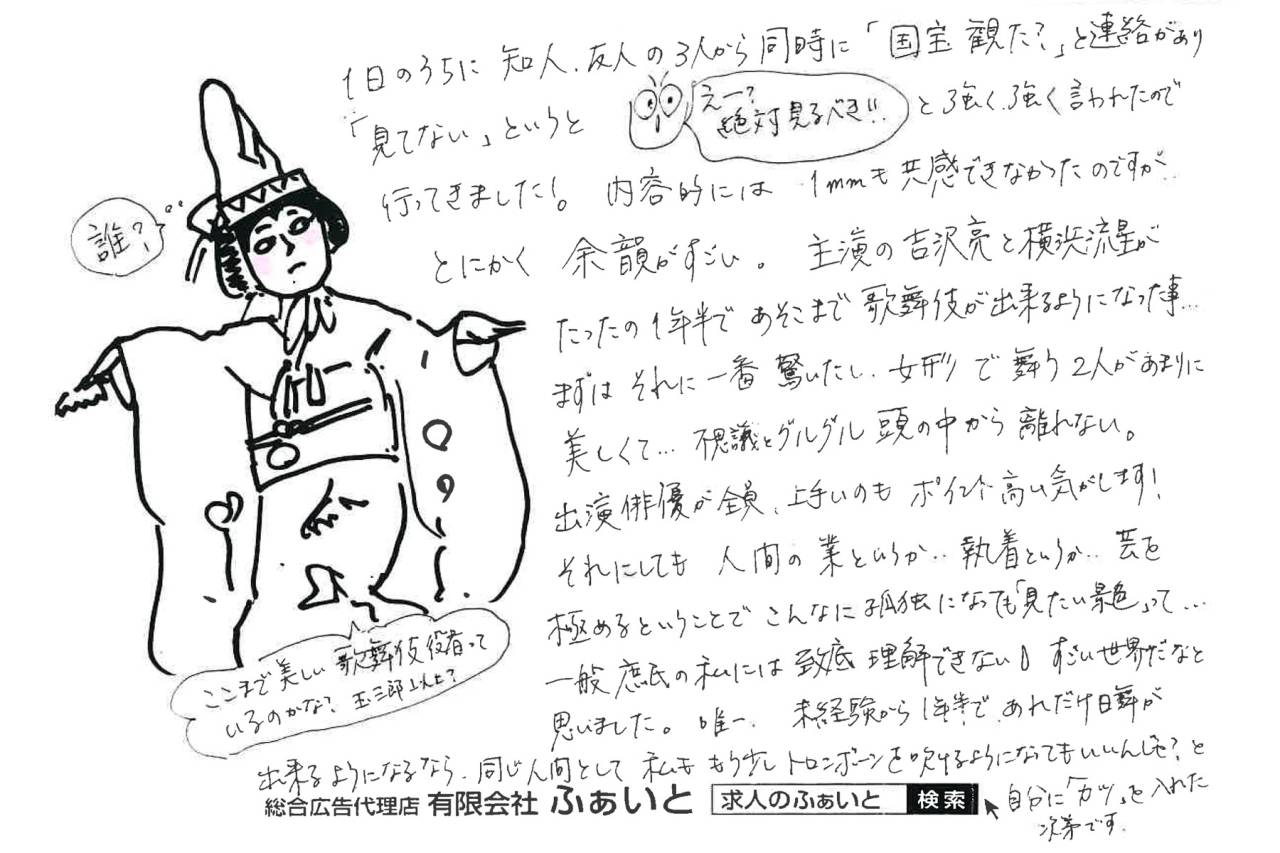 1日のうちに 知人、友人の3人から同時に「国宝 観た?」と連絡があり
「見てない」というと
えー?
絶対見るべき!!
と強く、強く言われたので
行ってきました!。 内容的には 1mmも共感できなかったのですが…
とにかく 余韻がすごい。 主演の吉沢亮と横浜流星が
たったの1年半で あそこまで 歌舞伎が出来るようになった事…
まずは それに一番 驚いたし、女形で 舞う 2人があまりに
美しくて… 不思議とグルグル 頭の中から 離れない。
出演俳優が全員、上手いのも ポイント高い気がします!
それにしても 人間の 業というか‥ 執着というか‥ 芸を
極めるということで こんなに孤独になっても「見たい景色」って…
一般庶民の私には 致底 理解できない すごい世界だなと
思いました。 唯一、 未経験から1年半で、あれだけ日舞が
出来るようになるなら、同じ人間として 私も もう少し トロンボーンを吹けるようになってもいいんじゃ?と
自分に「カツ」を入れた
次第です。
誰?
ここまで美しい 歌舞伎役者って
いるのかな? 玉三郎以上?
総合広告代理店 有限会社 ふぁいと 求人のふぁいと 検索